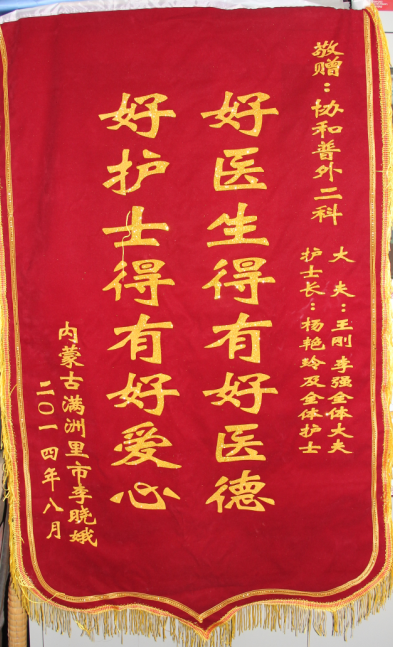 敬赠：协和普外二科
大夫：王刚 李强全体大夫
护士长：杨艳玲及全体护士
好医生得有好医德
好护士得有好爱心
内蒙古满洲里市李晓娥
二〇一四年八月